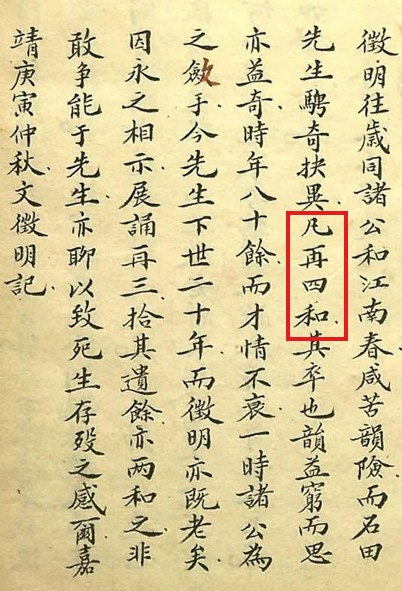 徵明往歲同諸公和江南春咸苦韻險而石田
先生騁奇抉異凡再四和其卒也韻益窮而思
亦益奇時年八十餘而才情不衰一時諸公為
之斂手今先生下世二十年而徵明亦既老矣
因永之相示展誦再三拾其遺餘亦两和之非
敢争能于先生亦聊以致死生存殁之感爾嘉
靖庚寅仲秋文徵明記